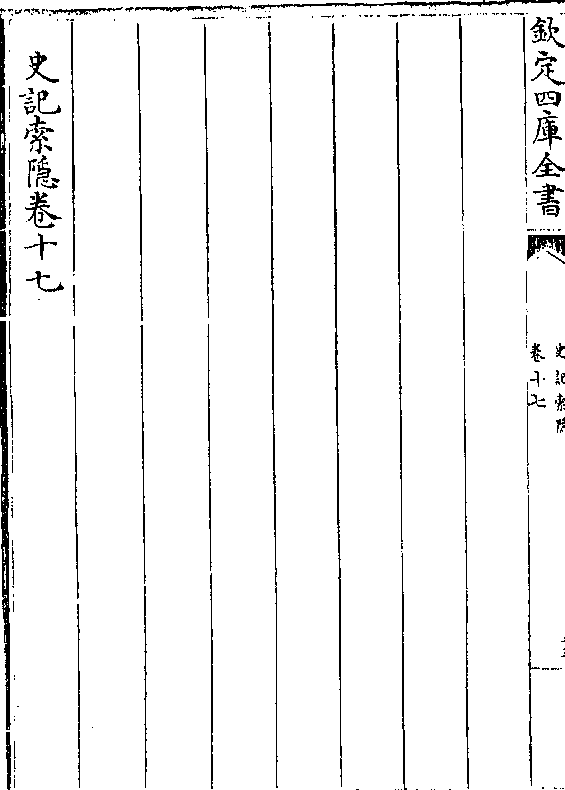 欽定四庫全書
史記索隱
卷十七
史記索隱卷十七